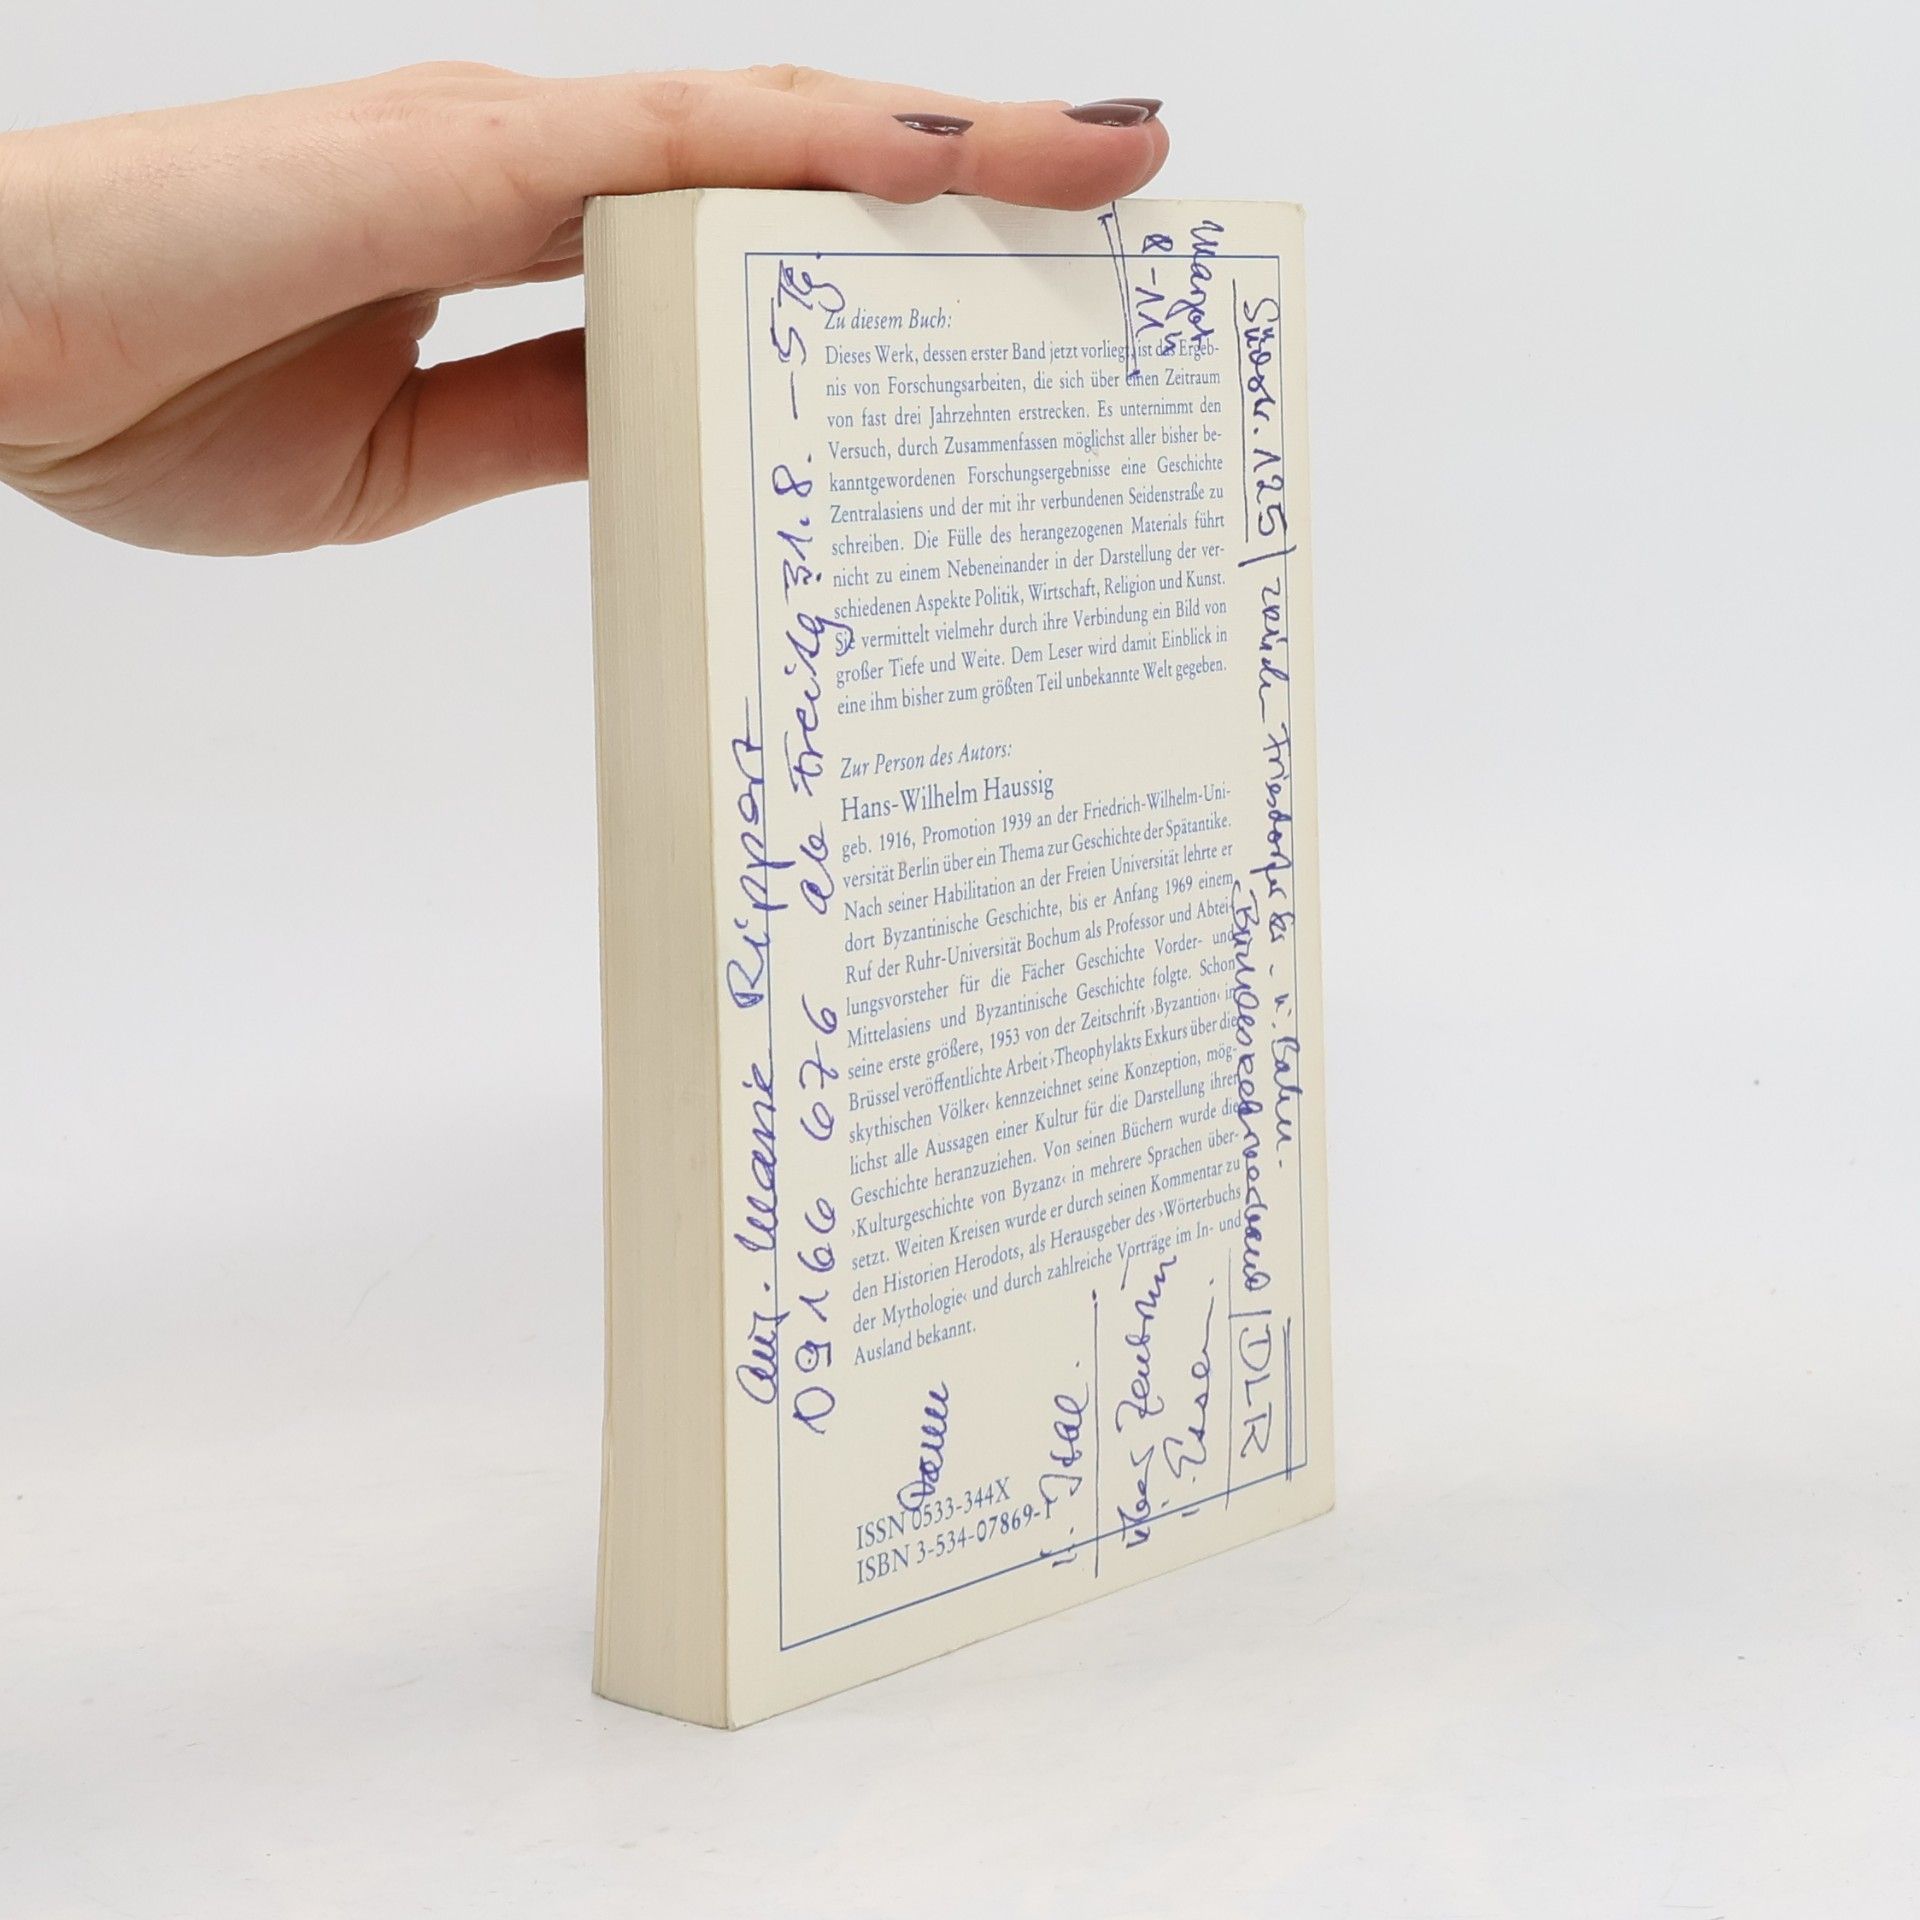 Zu diesem Buch:
Dieses Werk, dessen erster Band jetzt vorliegt, ist das Ergeb-
nis von Forschungsarbeiten, die sich über einen Zeitraum
von fast drei Jahrzehnten erstrecken. Es unternimmt den
Versuch, durch Zusammenfassen möglichst aller bisher be-
kanntgewordenen Forschungsergebnisse eine Geschichte
Zentralasiens und der mit ihr verbundenen Seidenstraße zu
schreiben. Die Fülle des herangezogenen Materials führt
nicht zu einem Nebeneinander in der Darstellung der ver-
schiedenen Aspekte Politik, Wirtschaft, Religion und Kunst.
Sie vermittelt vielmehr durch ihre Verbindung ein Bild von
großer Tiefe und Weite. Dem Leser wird damit Einblick in
eine ihm bisher zum größten Teil unbekannte Welt gegeben.
Zur Person des Autors:
Hans-Wilhelm Haussig
geb. 1916, Promotion 1939 an der Friedrich-Wilhelm-Uni-
versität Berlin über ein Thema zur Geschichte der Spätantike.
Nach seiner Habilitation an der Freien Universität lehrte er
dort Byzantinische Geschichte, bis er Anfang 1969 einem
Ruf der Ruhr-Universität Bochum als Professor und Abtei-
lungsvorsteher für die Fächer Geschichte Vorder- und
Mittelasiens und Byzantinische Geschichte folgte. Schon
seine erste größere, 1953 von der Zeitschrift ›Byzantion‹ in
Brüssel veröffentlichte Arbeit ›Theophylakts Exkurs über die
skythischen Völker‹ kennzeichnet seine Konzeption, mög-
lichst alle Aussagen einer Kultur für die Darstellung ihrer
Geschichte heranzuziehen. Von seinen Büchern wurde die
›Kulturgeschichte von Byzanz‹ in mehrere Sprachen über-
setzt. Weiten Kreisen wurde er durch seinen Kommentar zu
den Historien Herodots, als Herausgeber des ›Wörterbuchs
der Mythologie‹ und durch zahlreiche Vorträge im In- und
Ausland bekannt.
ISSN 0533-344X
ISBN 3-534-07869-1
Marie Rippert
09166 676 ab Freitg 31.8. – 5 Tg.
Margot
Südstr. 125
DLR